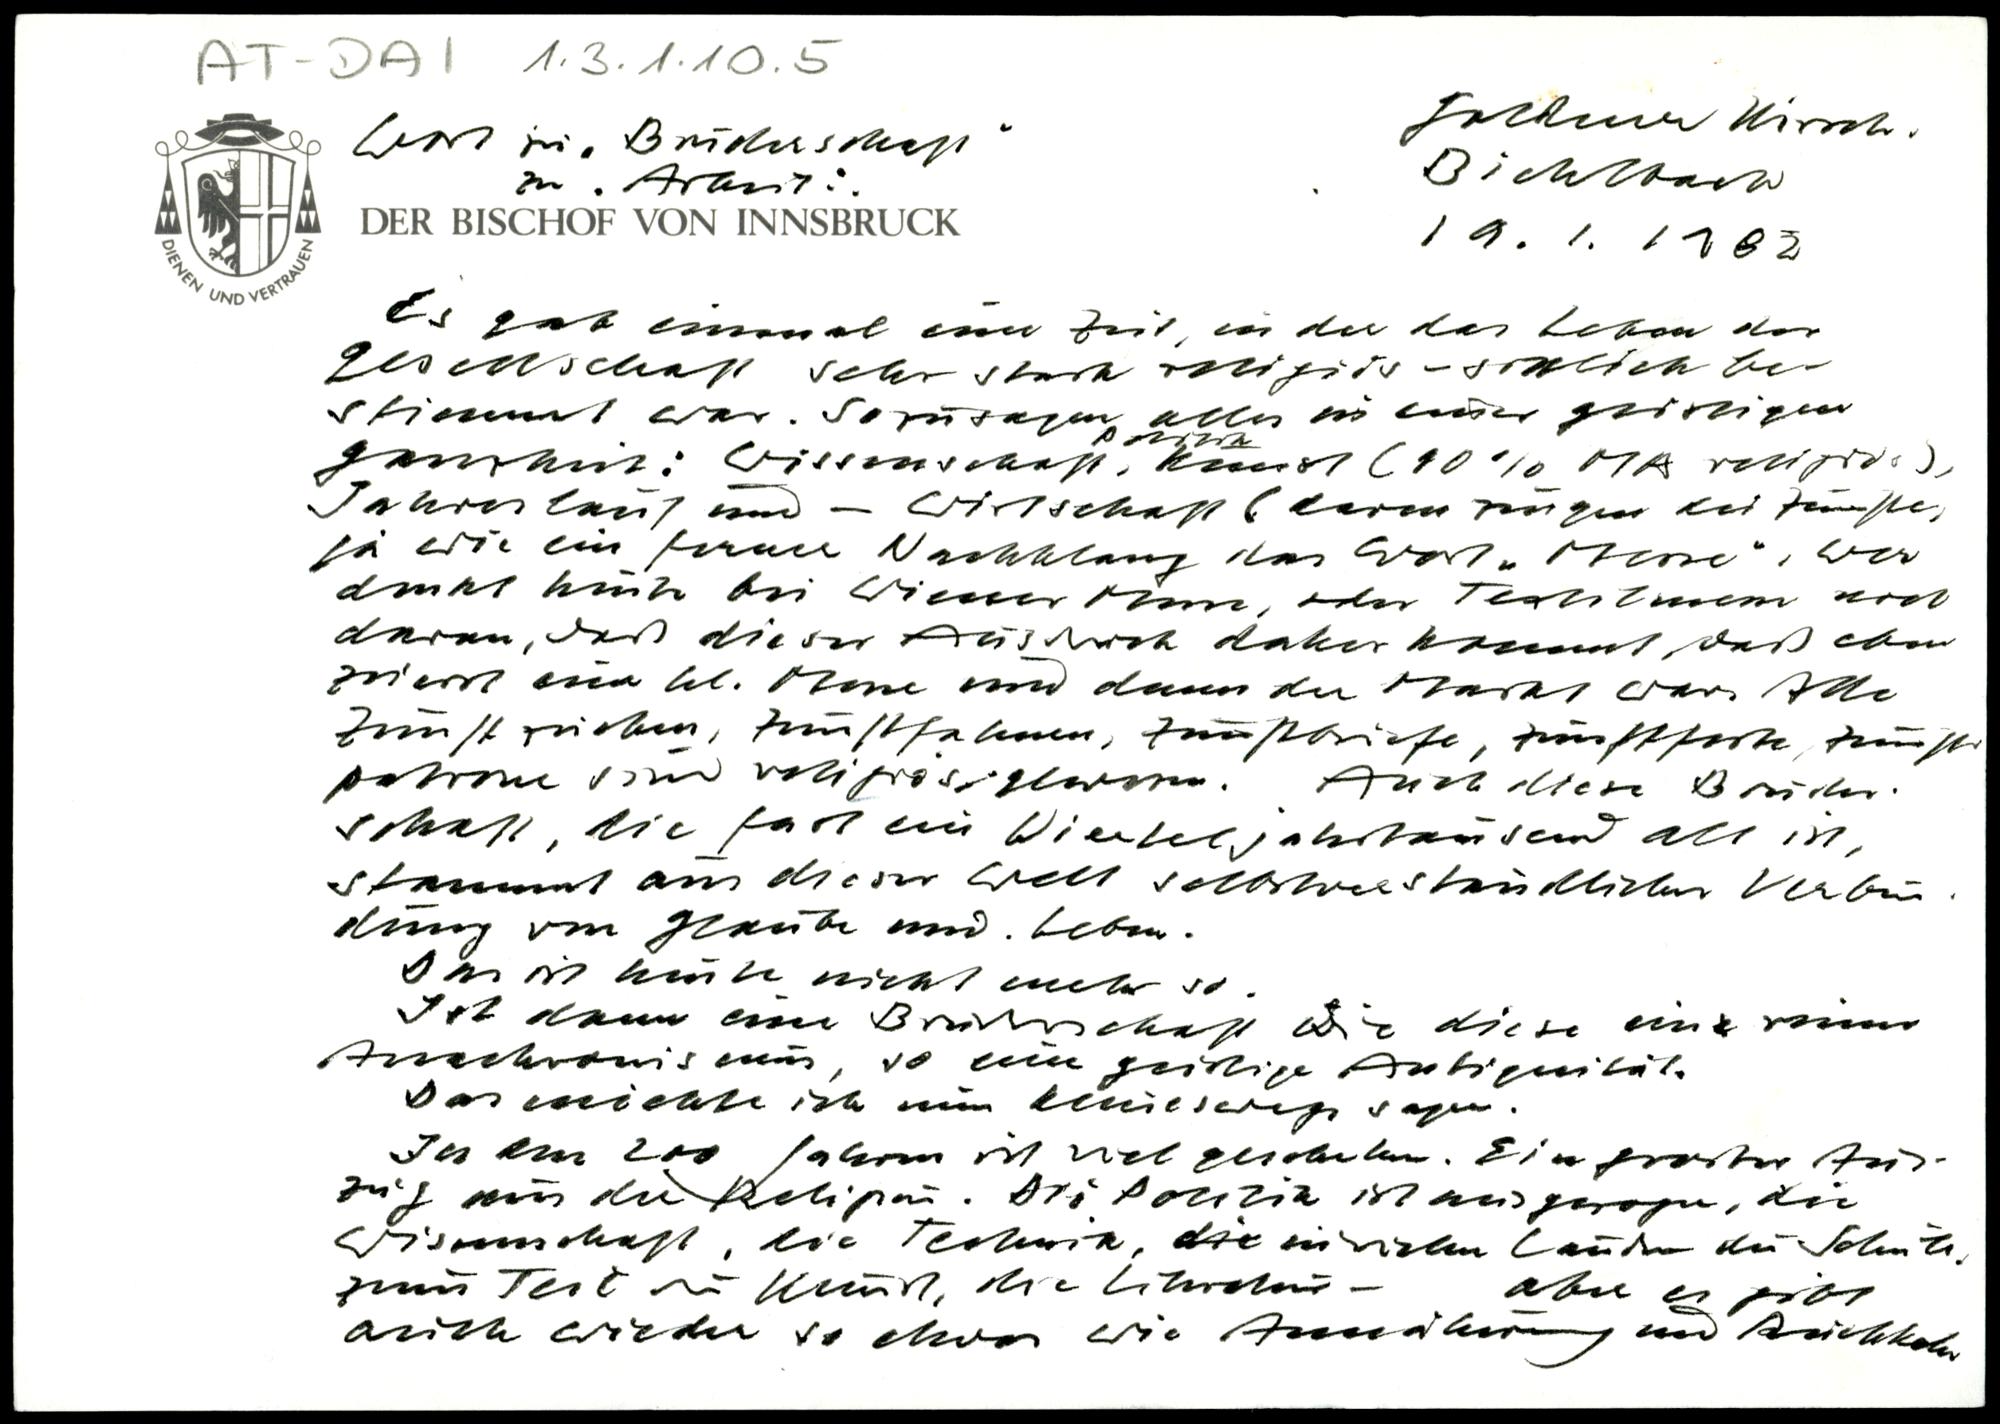 AT-DAI 1.3.1.10.5
Wort zu „Bruderschaft"
zu „Arbeit".
Goldener Hirsch.
Bichlbach
19.1.1982
DER BISCHOF VON INNSBRUCK
DIENEN UND VERTRAUEN
Es gab einmal eine Zeit, in der das Leben der
Gesellschaft sehr stark religiös-sittlich be-
stimmt war. Sozusagen alles in einer geistigen
Ganzheit: Wissenschaft, Politik Kunst (90% MA religiös),
Jahreslauf und – Wirtschaft (davon zeugen die Zünfte,
ja wie ein ferner Nachklang das Wort „Messe", wer
denkt heute bei Wiener Messe, oder Textilmesse noch
daran, daß dieser Ausdruck daher kommt, daß eben
zuerst eine hl. Messe und dann der Markt war. Alle
Zunftzeichen, Zunftfahnen, Zunftbriefe, Zunftfeste, Zunft-
patrone sind religiös gewesen. Auch diese Bruder-
schaft, die fast ein Vierteljahrtausend alt ist,
stammt aus dieser Welt selbstverständlicher Verbin-
dung von Glaube und Leben.
Das ist heute nicht mehr so.
Ist dann eine Bruderschaft wie diese ein reiner
Anachronismus, so eine geistige Antiquität.
Das möchte ich nun keineswegs sagen.
In den 200 Jahren ist viel geschehen. Ein großer Aus-
zug aus der Religion. Die Politik ist ausgezogen, die
Wissenschaft, die Technik, in vielen Ländern die Schule,
zum Teil die Kunst, die Literatur – aber es gibt
auch wieder so etwas wie Annäherung und Rückkehr